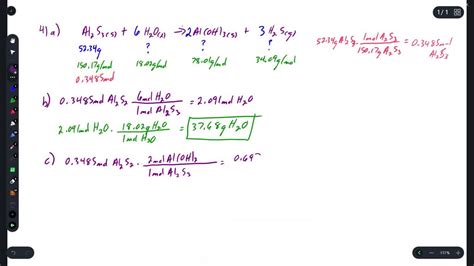 1 / 1
4) a) Al₂S₃(s) + 6 H₂O(l) → 2Al(OH)₃(s) + 3 H₂S(g)
52.34g ? ? ?
150.17g/mol 18.02g/mol 78.01g/mol 34.09g/mol
0.3485mol
52.34g Al₂S₃ · 1mol Al₂S₃ / 150.17g Al₂S₃ = 0.3485mol Al₂S₃
b) 0.3485mol Al₂S₃ · 6mol H₂O / 1mol Al₂S₃ = 2.091mol H₂O
2.091mol H₂O · 18.02g H₂O / 1mol H₂O = 37.68g H₂O
c) 0.3485mol Al₂S₃ · 2mol Al(OH)₃ / 1mol Al₂S₃ = 0.69